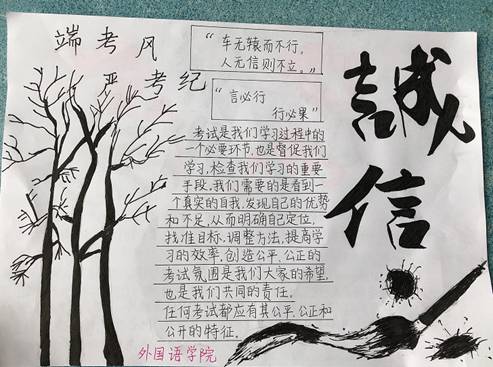 端考风
严考纪
“车无辕而不行，
人无信则不立。”
“言必行
行必果”
考试是我们学习过程中的
一个必要环节，也是督促我们
学习，检查我们学习的重要
手段，我们需要的是看到一
个真实的自我，发现自己的优势
和不足，从而明确自己定位，
找准目标，调整方法，提高学
习的效率，创造公平，公正的
考试氛围是我们大家的希望，
也是我们共同的责任。
任何考试都应有其公平，公正和
公开的特征。
外国语学院
誠信